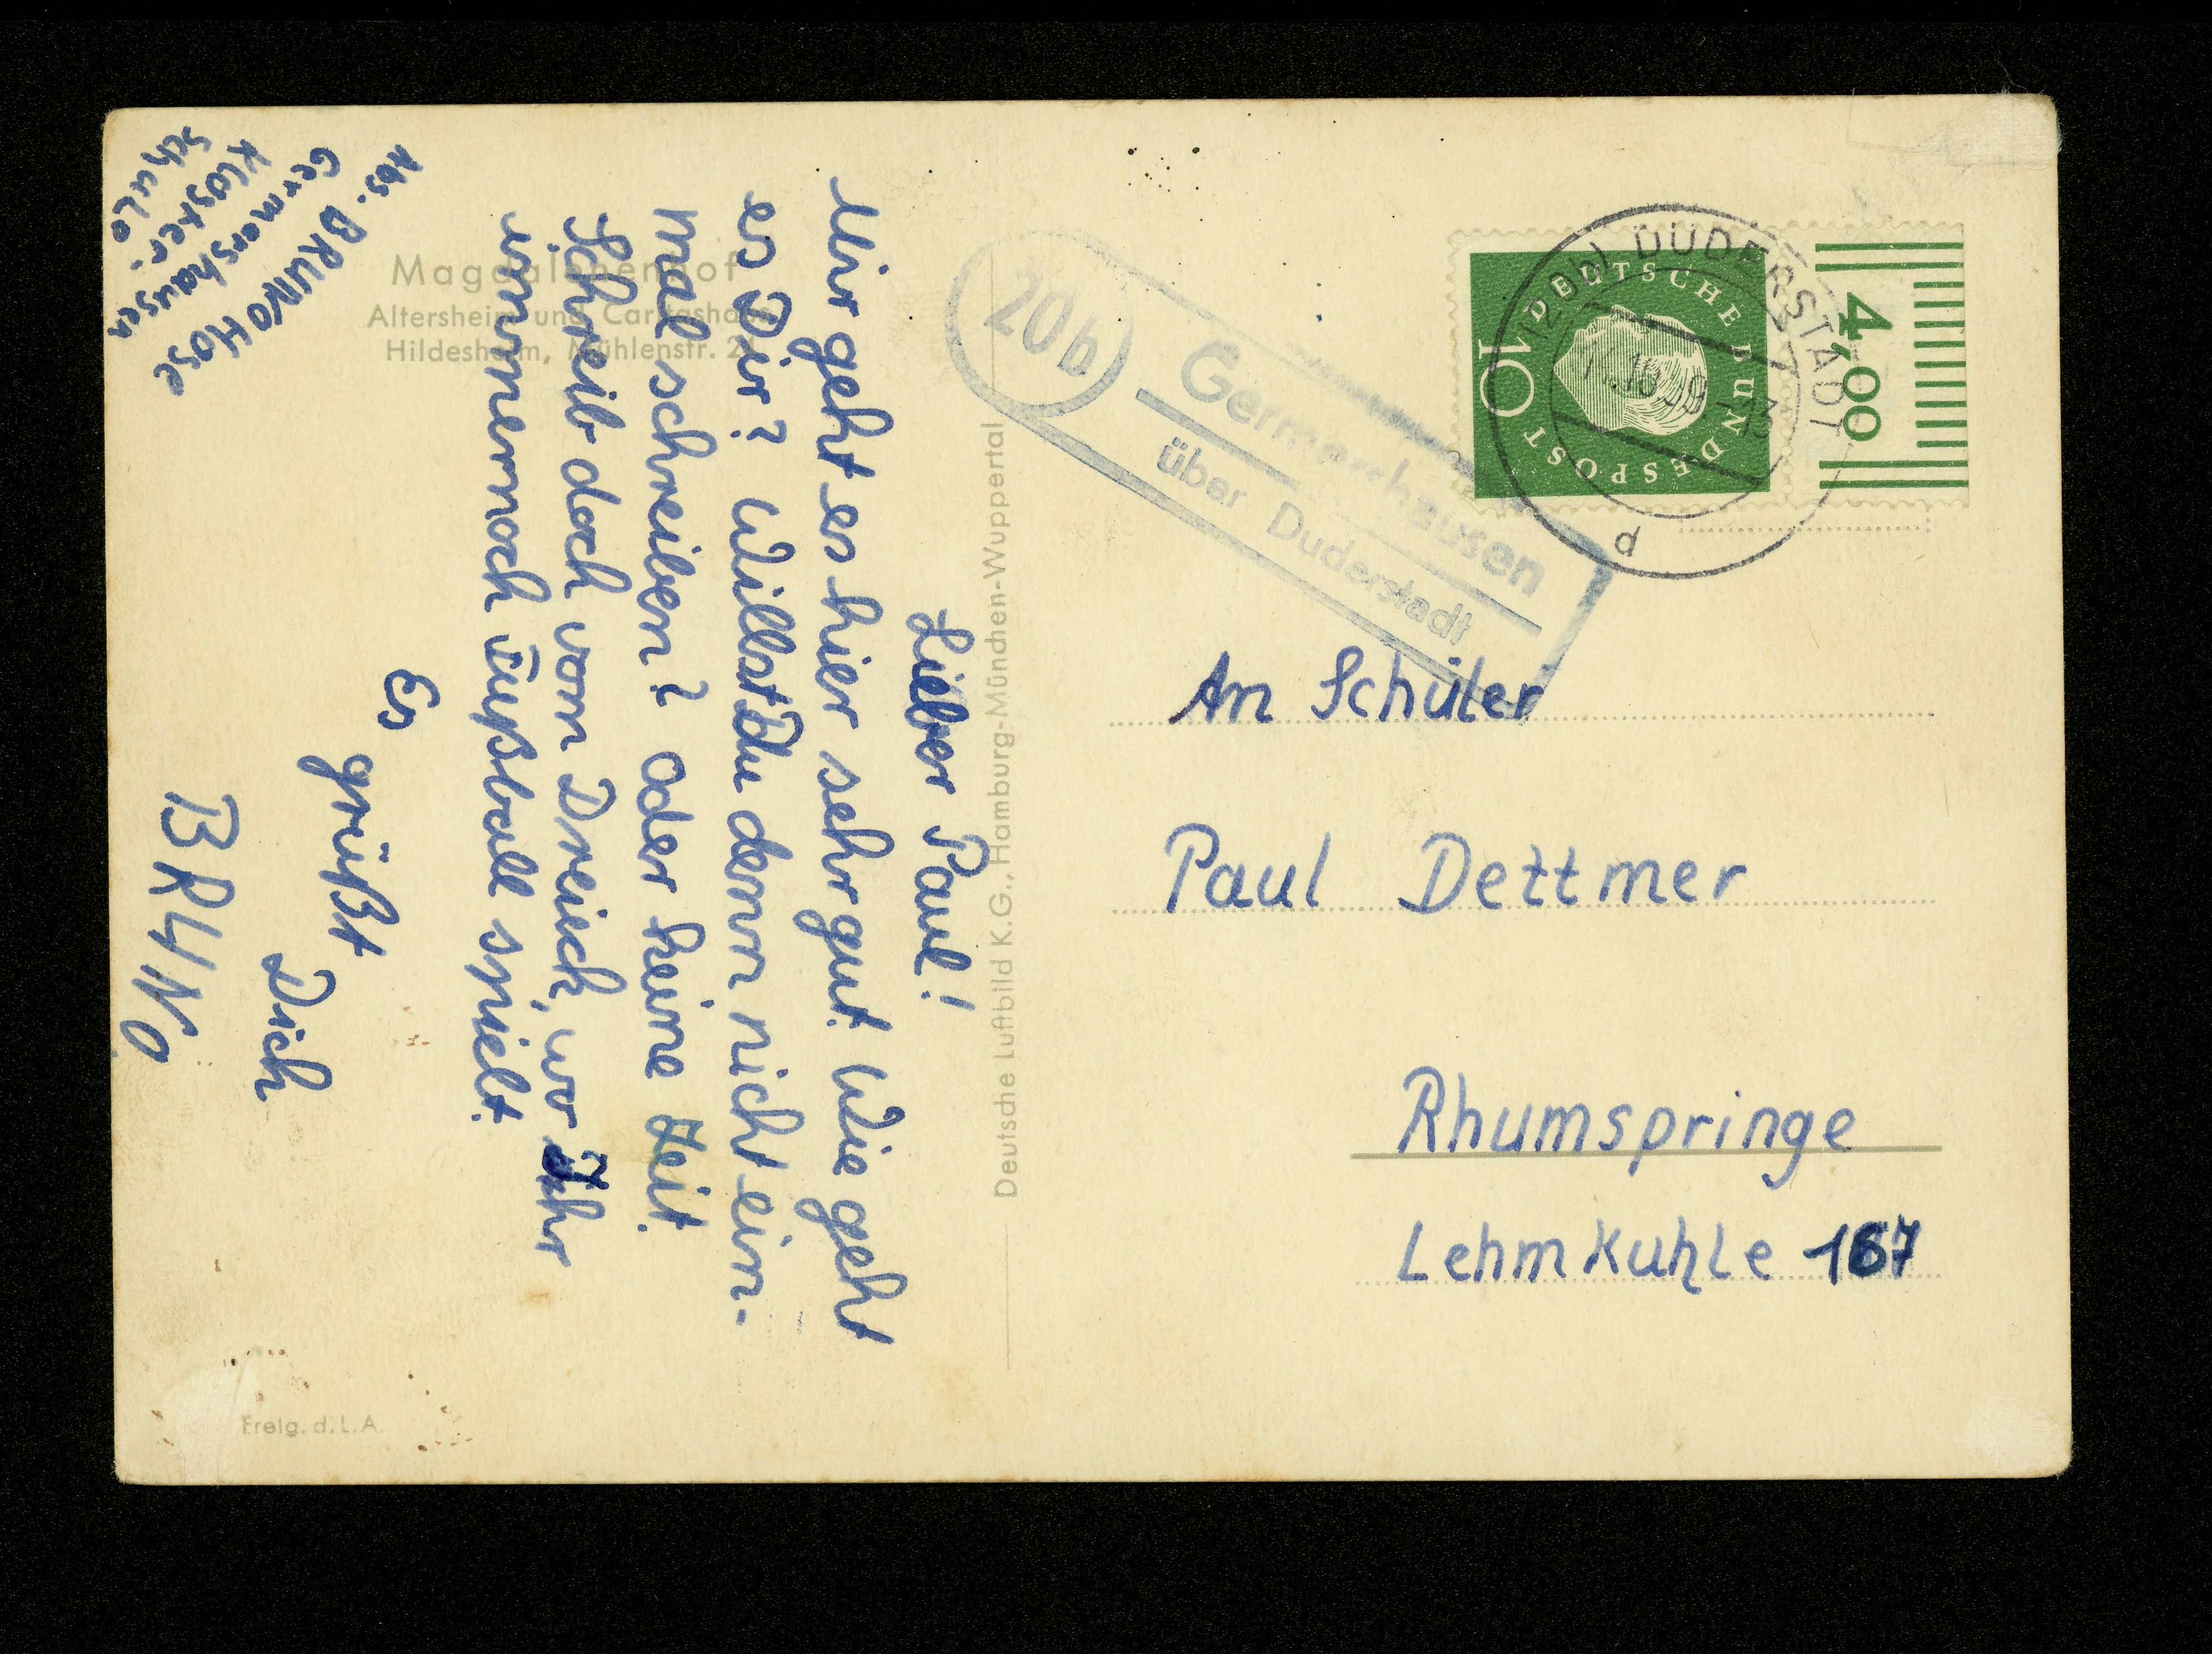 Abs. BRUNO Hose
Germershausen
Kloster.
schule
Magdalenenhof
Altersheim und Caritashaus
Hildesheim, Mühlenstr. 24
Lieber Paul!
Mir geht es hier sehr gut. Wie geht
es Dir? Willst Du denn nicht ein-
mal schreiben? Oder keine Zeit.
Schreib doch von Dreick, wo Ihr
immernoch Fußball spielt.
Es
grüßt
Dich
BRUNO
Freig. d. L. A.
Deutsche Luftbild K.G., Hamburg-München-Wuppertal
20b
Germershausen
über Duderstadt
DEUTSCHE BUNDESPOST
10
4,00
(20b) DUDERSTADT
d
An Schüler
Paul Dettmer
Rhumspringe
Lehmkuhle 167